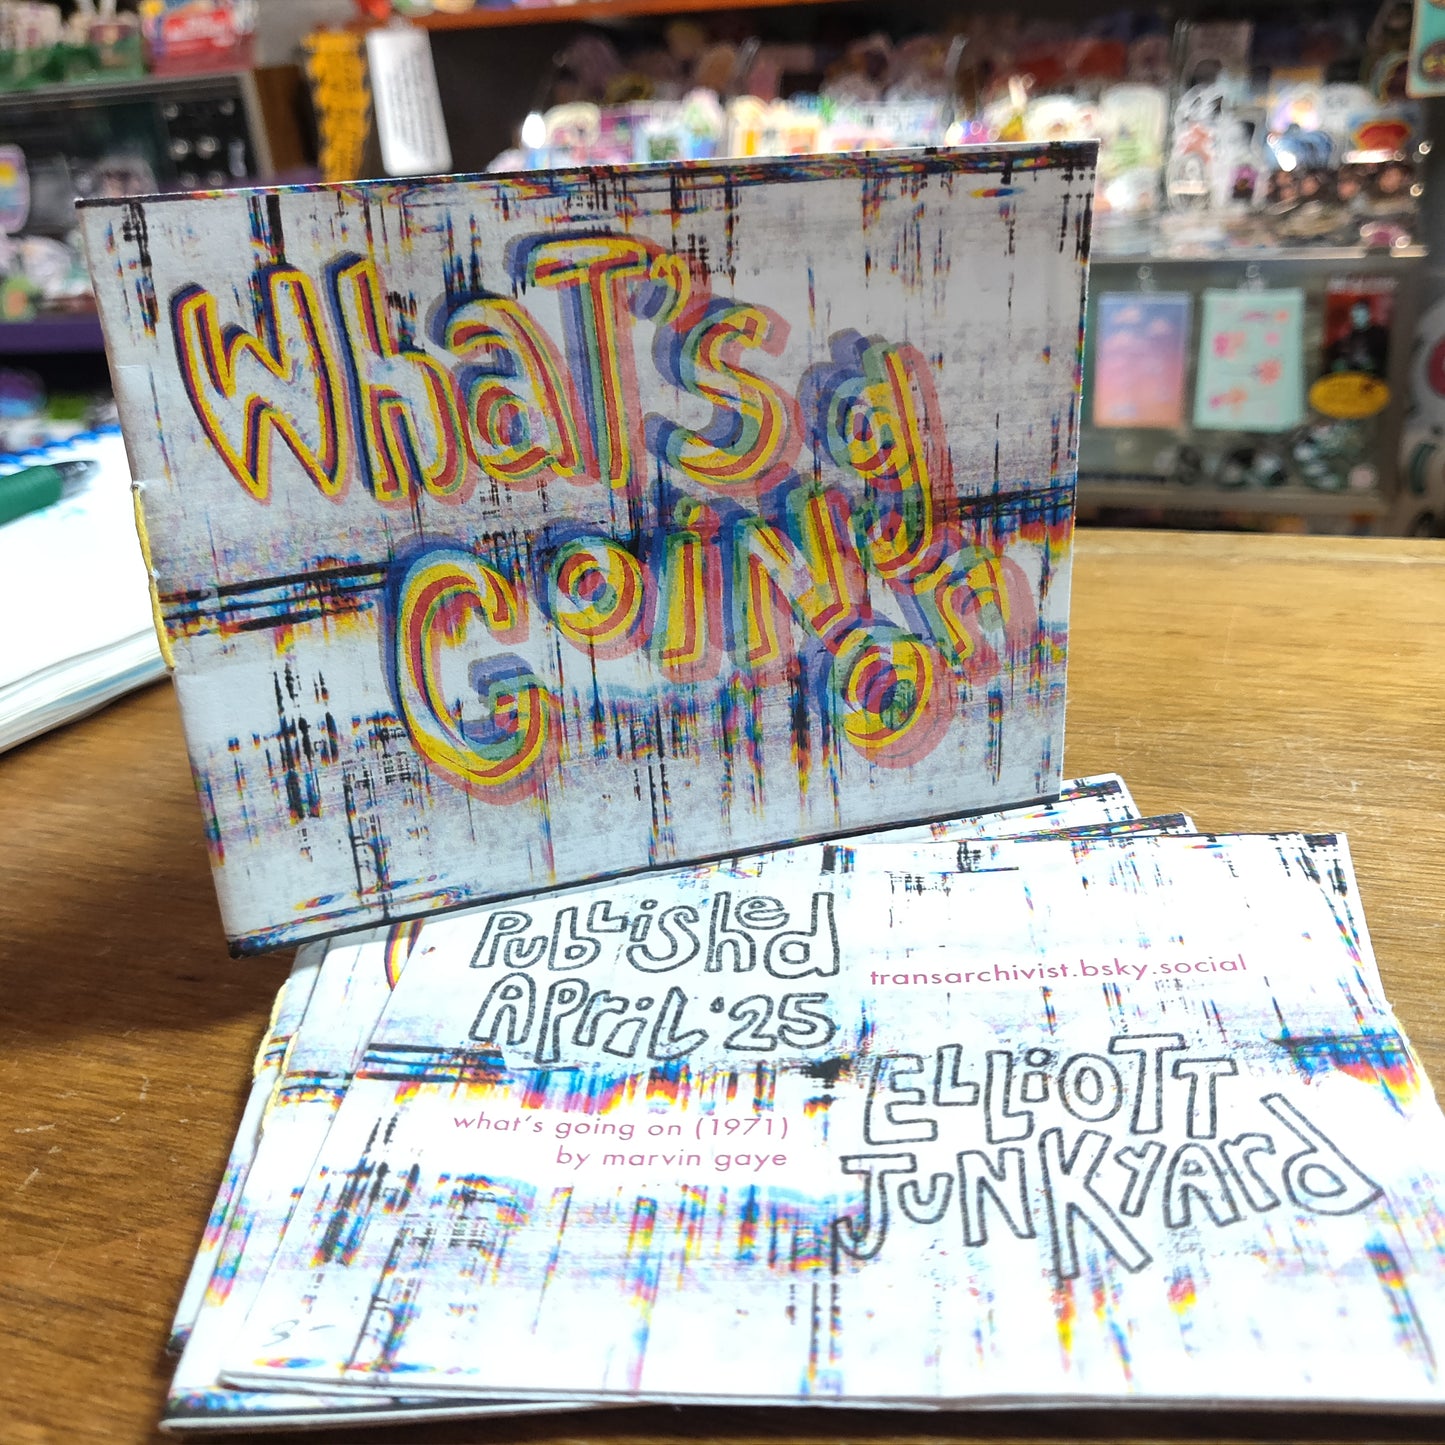 WhaT's
GoiNg on
PubLished
APriL '25
transarchivist.bsky.social
ELLiOTT
JuNKyArd
what's going on (1971)
by marvin gaye